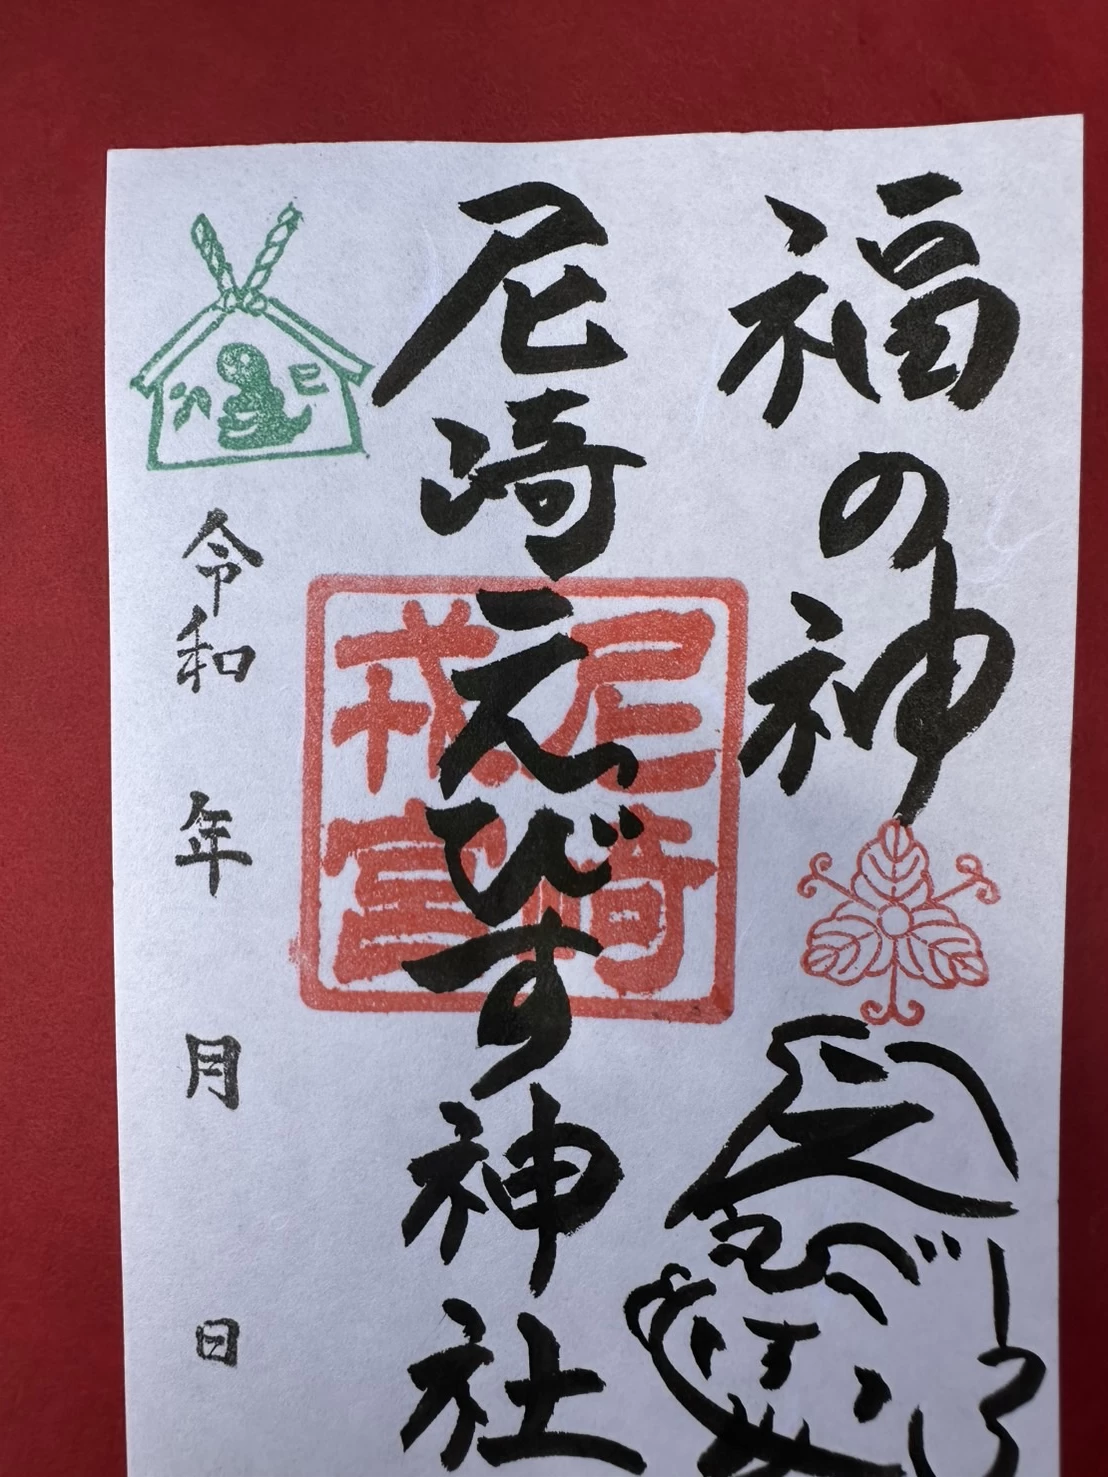 福の神
尼崎えびす神社
尼崎
戎宮
巳
令和 年 月 日